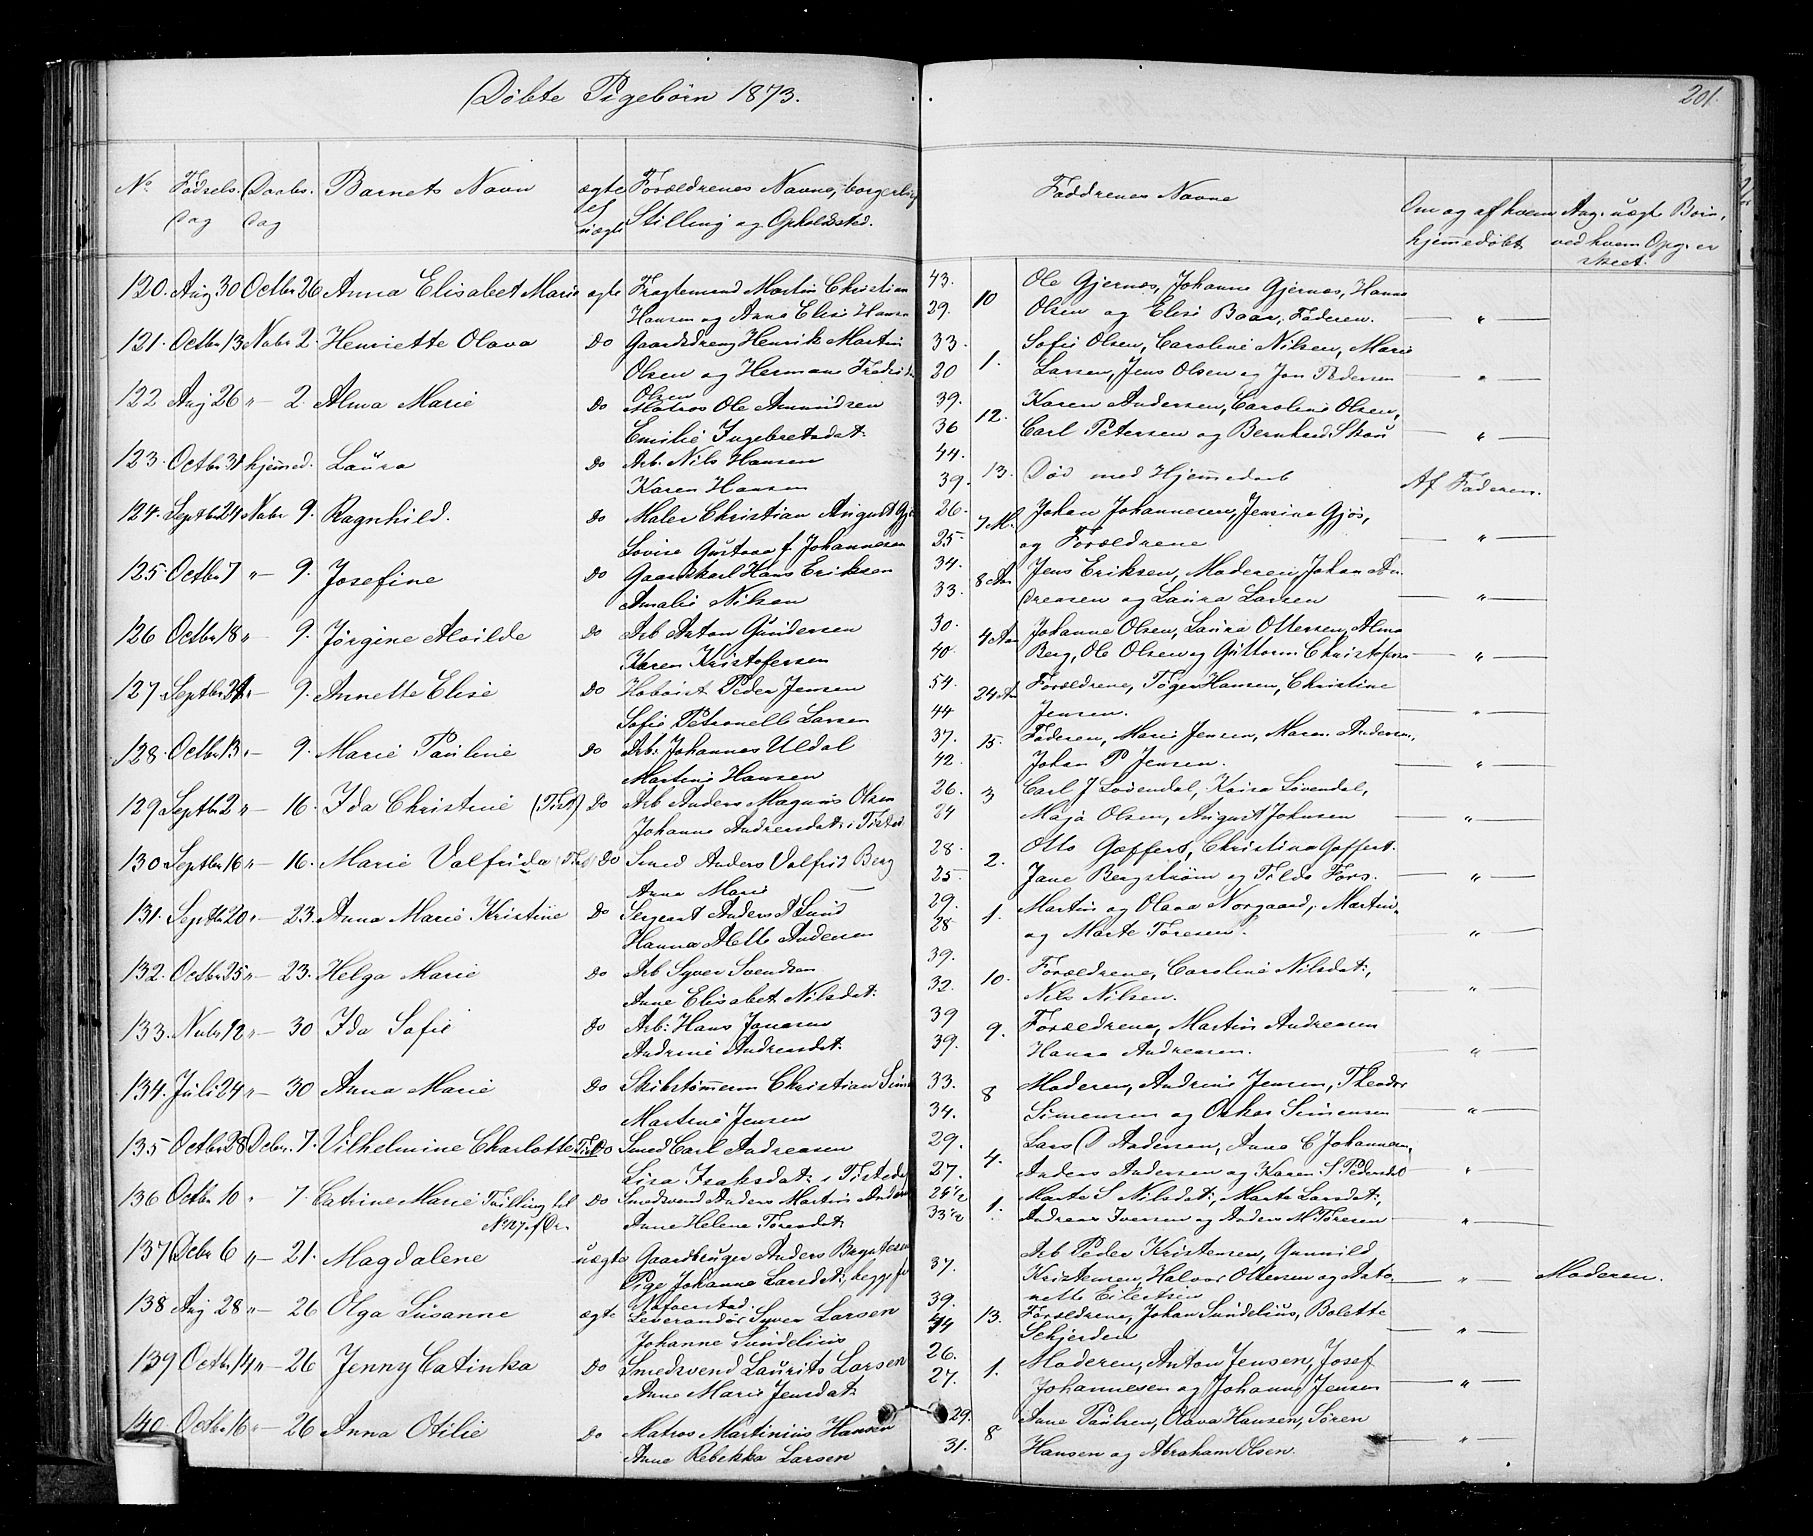 Döbte Pigebörn 1873.
201.
No Födsels- Daabs- Barnets Navn ægte Forældrenes Navne, borgerlig Faddrenes Navne Om og af hvem Ang. uægte Börn,
dag dag el uægte Stilling og Opholdssted. hjemmedöbt ved hvem Opg. er
skeet.
120. Aug 30 Octbr 26 Anna Elisabet Marie ægte Fragtemand Martin Christian 43. 10 Ole Gjernes, Johanne Gjernes, Hanna
Hansen og Anne Elise Hansen 29. Olsen og Elise Baar, Faderen. — " —
121. Octbr 13 Nvbr 2. Henriette Olava Do Gaardsdreng Henrik Martin 33. 1. Sofie Olsen, Caroline Nilsen, Marie
Olsen og Hermane Fredrik 20 Larsen, Jens Olsen og Jon Pedersen — " —
Olsen
122 Aug 26 " — 2. Alma Marie Do Matros Ole Amundsen 39. 12. Karen Andersen, Caroline Olsen,
Emilie Ingebretsdat. 36 Carl Petersen og Bernhard Skou — " —
123. Octbr 31 hjemed. Laura Do Arb. Nils Hansen 44. 13. Död med Hjemmedaab Af Faderen.
Karen Hansen 39.
124. Septbr 24 Nvbr 9. Ragnhild. Do Maler Christian August 26. 7 M. Johan Johannesen, Jensine Gjös,
Lovise Gustava f. Johannesen 25. og Forældrene — " —
125 Octbr 7 " — 9. Josefine Do Gaardskarl Hans Eriksen 34. 8 Aar Jens Eriksen, Moderen, Johan An-
Amalie Nilsen 33. dreasen og Laura Larsen — " —
126 Octbr 18 " 9. Jörgine Alvilde Do Arb Anton Gundersen 30. 4 Aar Johanne Olsen, Laura Ottersen, Alma
Karen Kristofersen 40. Berg, Ole Olsen og Guttorm Christofersen — " —
127 Septbr 21 " 9. Annette Elise Do Peder Jensen 54. 24 Aar Forældrene, Töger Hansen, Christine
Sofie Petronelle Larsen 44 Jensen. — " —
128. Octbr 13 " 9. Marie Pauline Do Arb. Johannes Uldal 37. 15. Faderen, Marie Jensen, Maren Andersen,
Martine Hansen 42. Johan P Jensen. — " —
129 Septbr 2 " — 16. Ida Christine (Tist) Do Arb Anders Magnus Olsen 26. 3 Carl J Lövendal, Kaisa Lövendal,
Johanne Andreasdat. i Tistedal 24 Maja Olsen, August Johnsen — " —
130 Septbr 16 " — 16. Marie Valfrida (Tist) Do Smed Anders Valfrid Berg 28. 2. Otto Gæffert, Christina Gæffert.
Anna Marie — 25. Jane Bergström og Tilda Fors. — " —
131. Septbr 20 " — 23. Anna Marie Kristine Do Sergeant Anders P Lund 29. 1. Martin og Olava Norgaard, Martin
Hanna Mette Andersen 28 og Marte Toresen. — " —
132. Octbr 25 " — 23. Helga Marie Do Arb Syver Svendsen 39. 10. Forældrene, Caroline Nilsdat.,
Anne Elisabet Nilsdat. 32. Nils Nilsen. — " —
133. Nvbr 12 " — 30 Ida Sofie Do Arb: Hans Jonasen 39 9. Forældrene, Martin Andreasen
Andrine Andreasdat. 39. Hanna Andreasen. — " —
134. Juli 24 " — 30 Anna Marie Do Skibstömrm Christian Simen 33. 8 Moderen, Andrine Jensen, Theodor
Martine Jensen 34. Simensen og Oskar Simensen — " —
135 Octbr 28 Decbr. 7. Vilhelmine Charlotte Tist Do Smed Carl Andreasen 29. 4. Lars P Andersen, Anne C Johannesen,
Lisa Isaksdat. i Tistedal 27. Anders Andersen og Karen S. Pedersdat — " —
136 Octbr 10 " 7. Catrine Marie Tvilling til Do Smedsvend Anders Martin Andersen 24½ 1. Marte S Nilsdat., Marte Larsdat.,
No 127 af Dr. Anne Helene Toresdat. 33½ Andreas Iversen og Anders M Toresen — " —
137 Decbr 6 " 21. Magdalene uægte Gaardbruger Anders Berntsen 37. Arb Peder Kristensen, Gunnild
Pige Johanne Larsdat., begge fr Kristensen, Halvor Ottersen og Anto- — " — Moderen.
39. nette Eilertsen
138 Aug 28 " — 26 Olga Susanne ægte Leverandör Syver Larsen 44 13. Forældrene, Johan Sundelius, Bolette
Johanne Sundelius Schjerden — " —
139 Octbr 14 " — 26 Jenny Catinka Do Smedsvend Laurits Larsen 26. 1. Moderen, Anton Jensen, Josef
Anne Marie Jensdat. 27. Johannesen og Johanne Jensen — " —
140 Octbr 16 " — 26 Anna Otilie Do Matros Martinius Hansen 29. 8 Anne Paulsen, Olava Hansen, Sören
Anne Rebekka Larsen 31. Hansen og Abraham Olsen. — " —